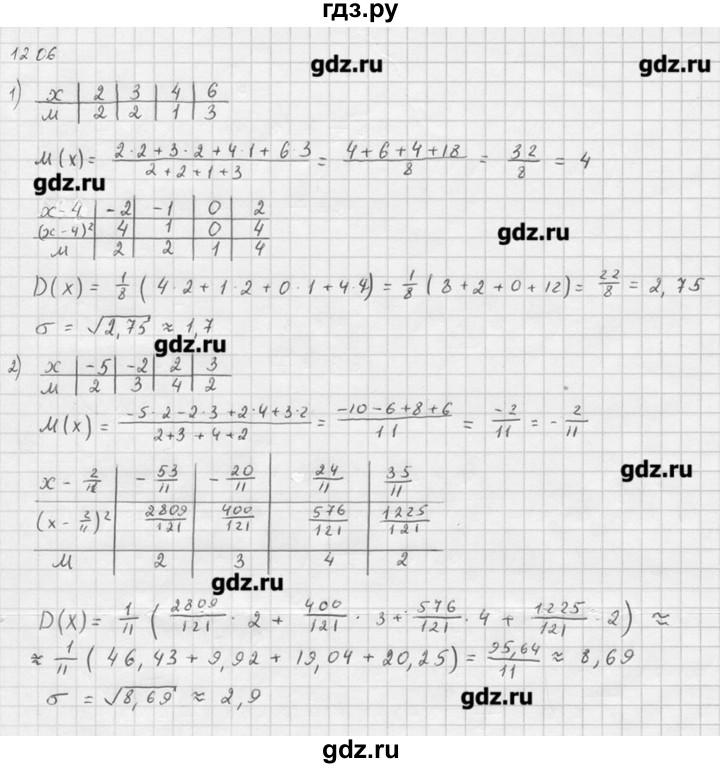 гдз.ру
1206
gdz.ru gdz.ru
1) x | 2 | 3 | 4 | 6
М | 2 | 2 | 1 | 3
М(x) = (2·2 + 3·2 + 4·1 + 6·3)/(2+2+1+3) = (4+6+4+18)/8 = 32/8 = 4
gdz.ru
x-4 | -2 | -1 | 0 | 2
(x-4)² | 4 | 1 | 0 | 4
М | 2 | 2 | 1 | 4
gdz.ru
D(x) = 1/8 (4·2 + 1·2 + 0·1 + 4·4) = 1/8 (8+2+0+12) = 22/8 = 2,75
σ = √2,75 ≈ 1,7
gdz.ru
2) x | -5 | -2 | 2 | 3
М | 2 | 3 | 4 | 2
М(x) = (-5·2 - 2·3 + 2·4 + 3·2)/(2+3+4+2) = (-10-6+8+6)/11 = -2/11 = -2/11
gdz.ru
x - 2/11 | -53/11 | -20/11 | 24/11 | 35/11
(x - 2/11)² | 2809/121 | 400/121 | 576/121 | 1225/121
М | 2 | 3 | 4 | 2
gdz.ru
D(x) = 1/11 (2809/121 · 2 + 400/121 · 3 + 576/121 · 4 + 1225/121 · 2) ≈
≈ 1/11 (46,43 + 9,92 + 19,04 + 20,25) = 95,64/11 ≈ 8,69
σ = √8,69 ≈ 2,9
gdz.ru
gdz.ru